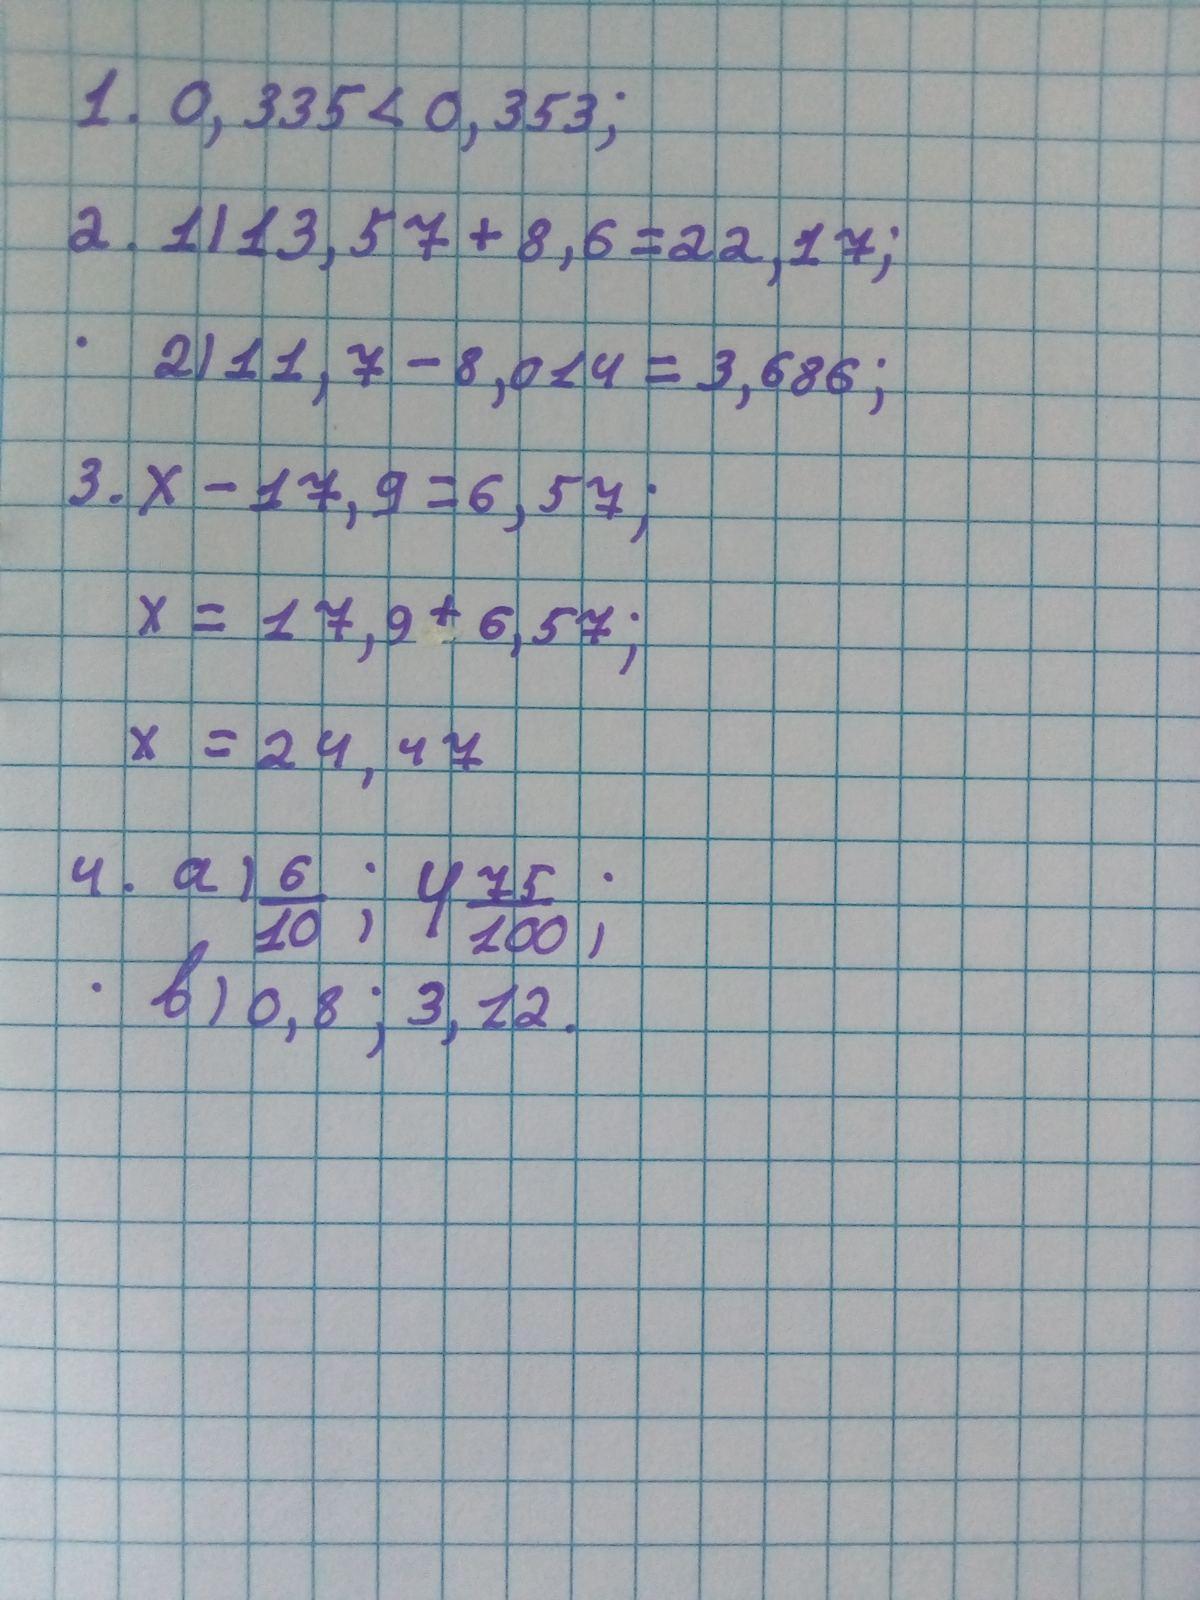 1. 0,335 < 0,353;
2. 1) 13,57 + 8,6 = 22,17;
2) 11,7 - 8,014 = 3,686;
3. x - 17,9 = 6,57;
x = 17,9 + 6,57;
x = 24,47
4. а) 6/10; 4 75/100;
в) 0,8; 3,12.